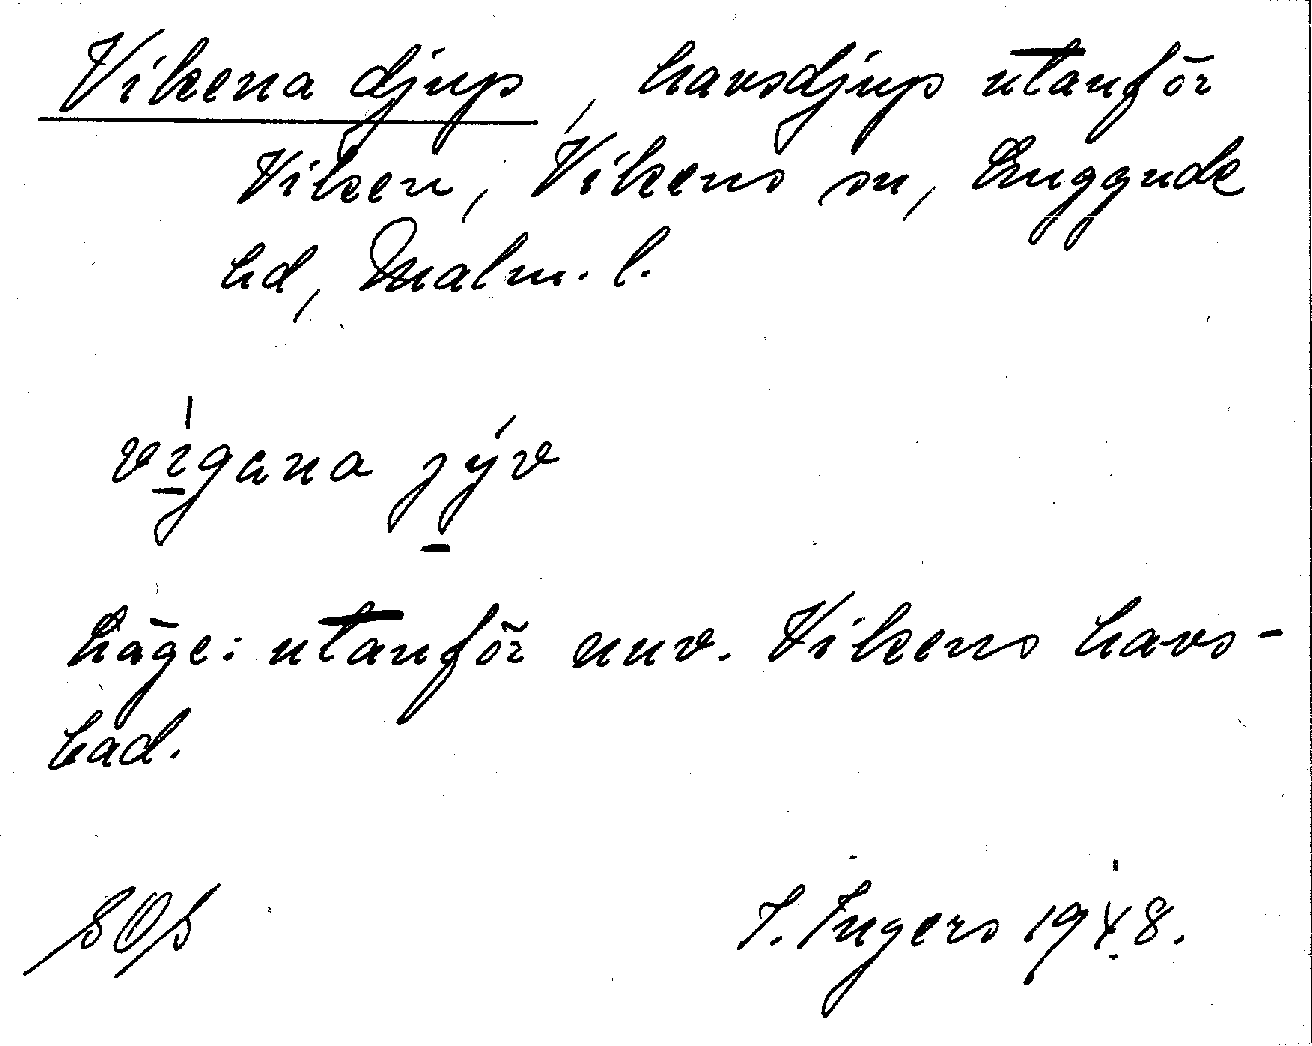 Vikena djup, havsdjup utanför
Viken, Vikens sn, Luggude
hd, Malm. l.
vígana jýv
Läge: utanför nuv. Vikens havs-
bad.
I. Ingers 1948.